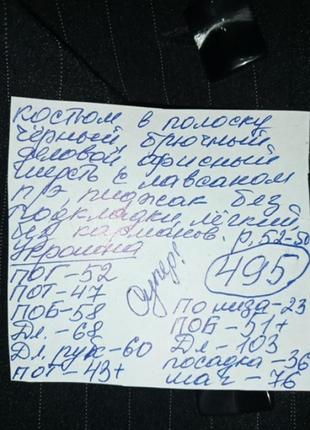 костюм в полоску
чёрный брючный
деловой офисный
шерсть с лавсаном
п/э, пиджак без
подкладки, лёгкий
карманов. р. 52-50
Украина
495
ПОГ-52
ПОТ-47
ПОБ-58
Дл.-68
Дл. рук-60
ПОТ-43+
Супер!
ПО низа-23
ПОБ-51+
Дл-103
посадка-36
-76